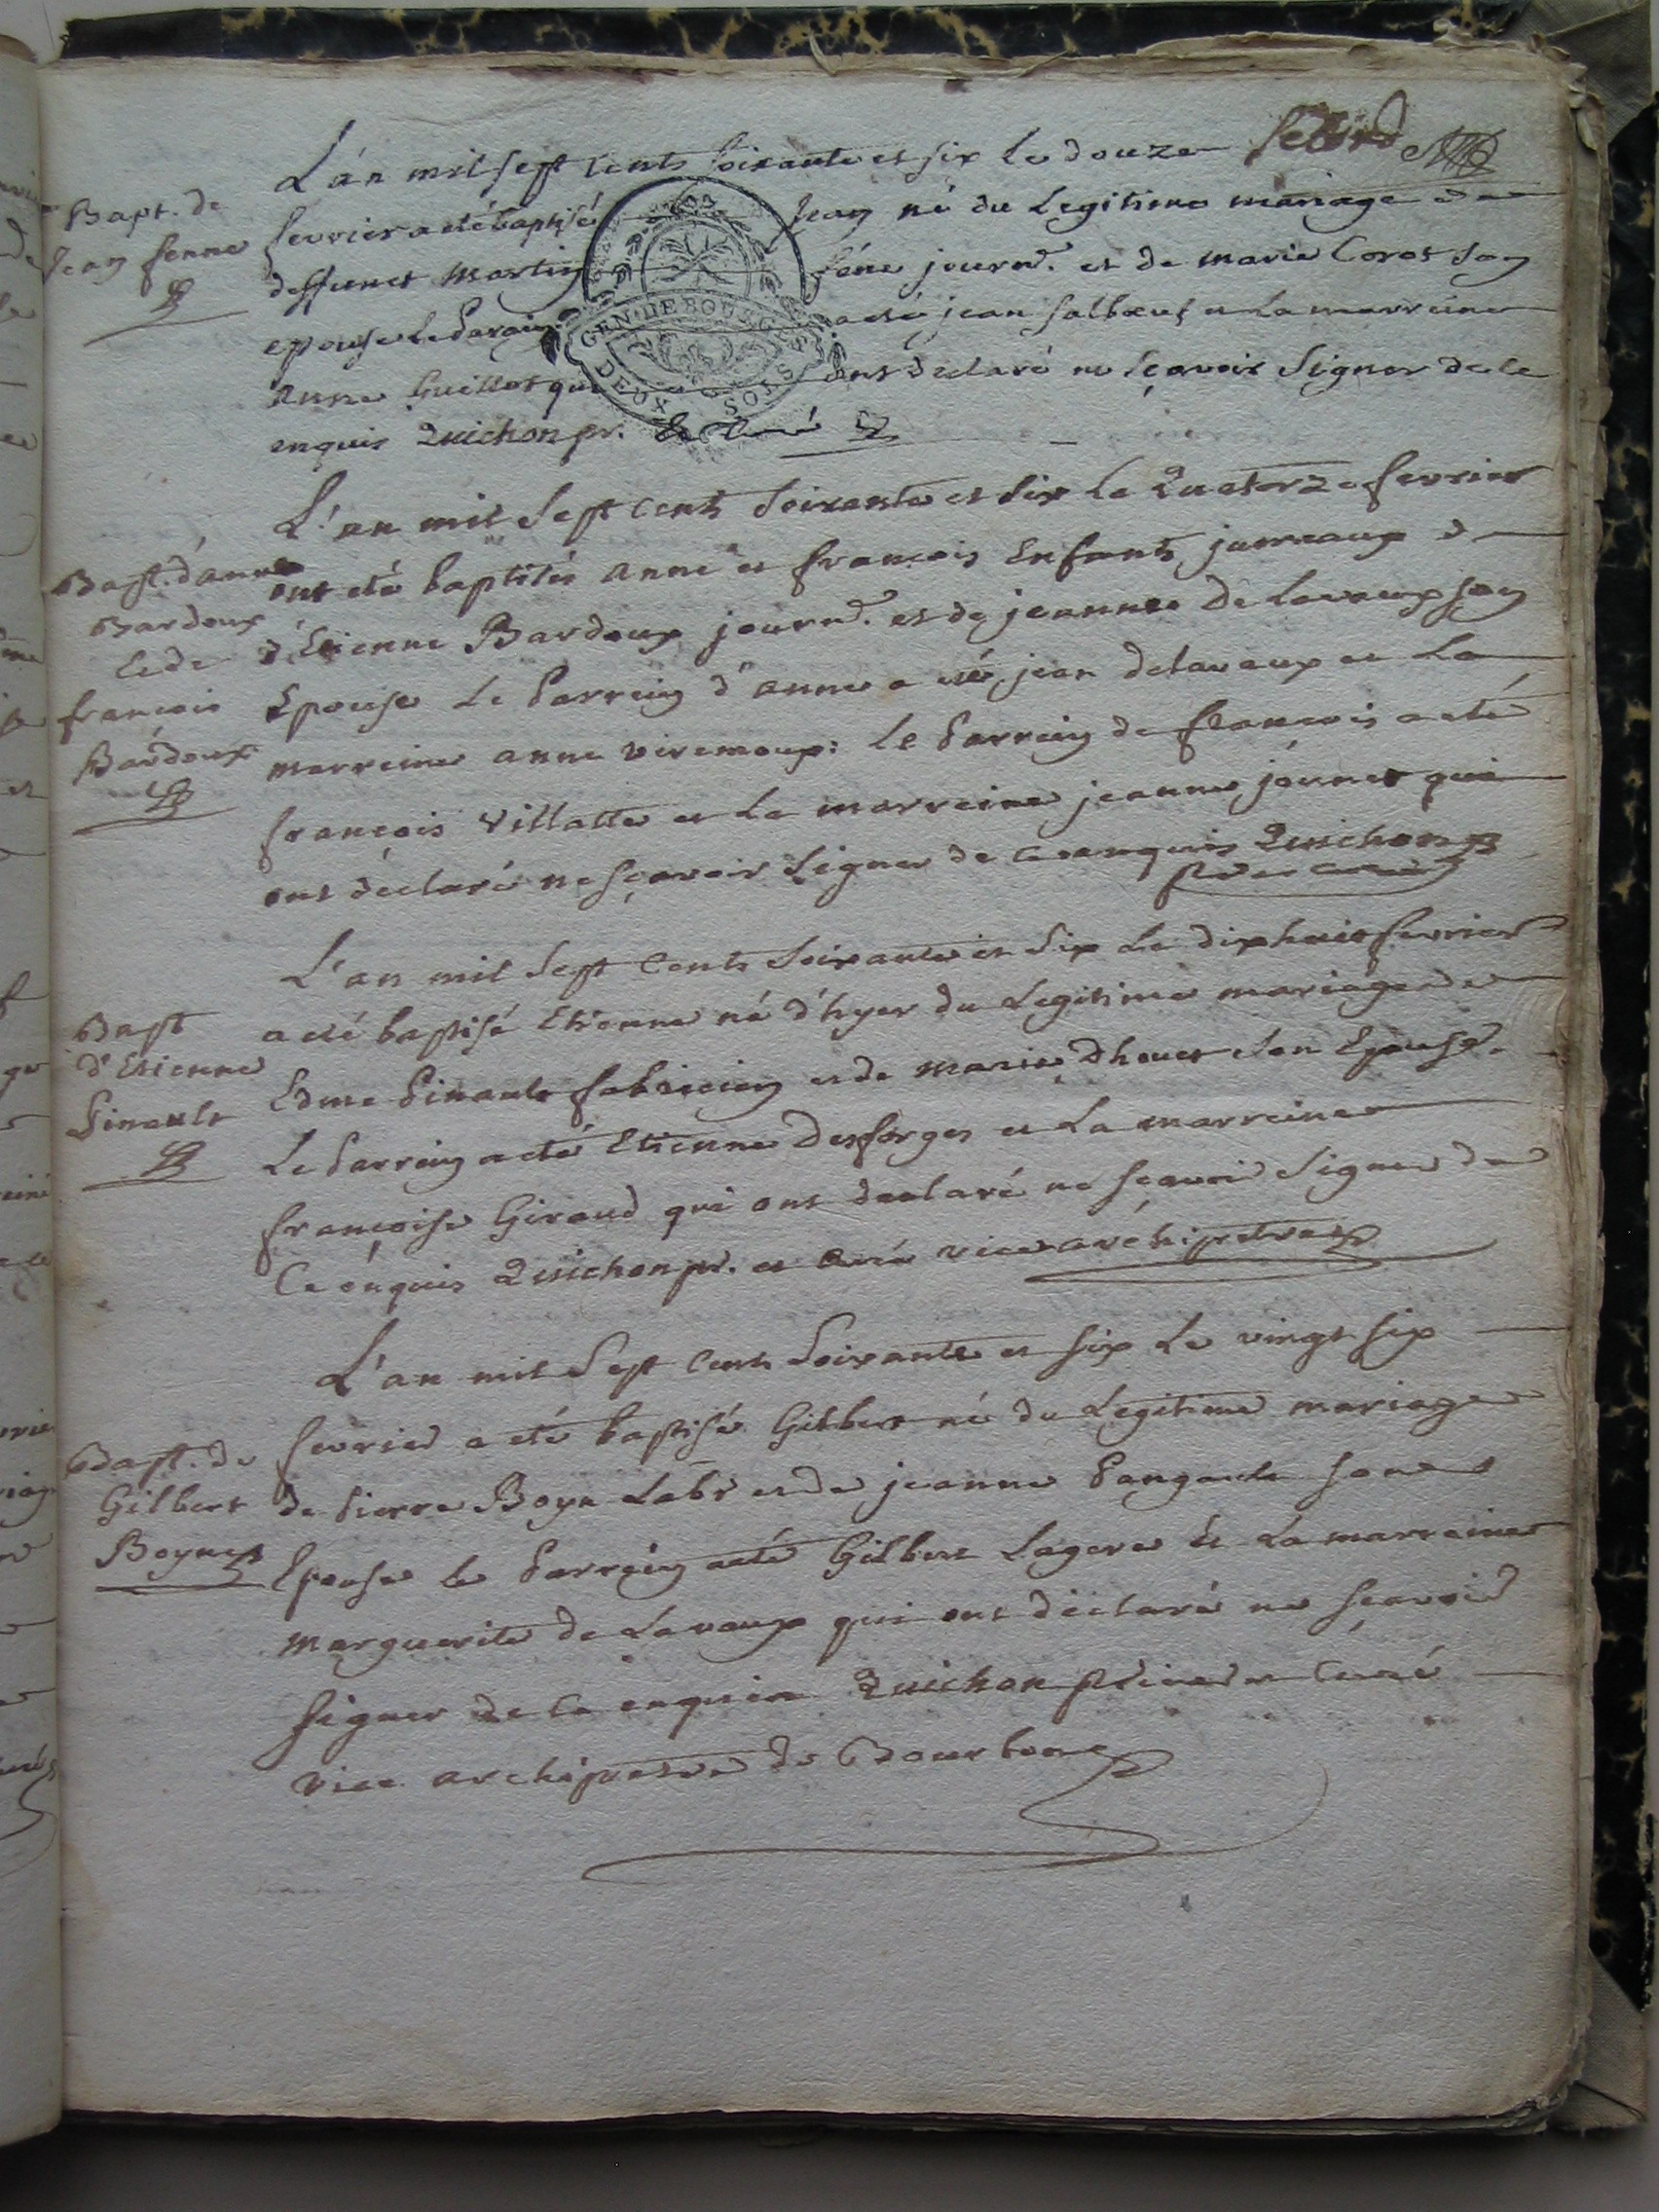 Second
L'an mil sept cents soixante et six le douze
Bapt. de
Jean fenne
fevrier a eté baptisé Jean né du Legitime mariage de
deffunct Martin féne journr. et de marie Corot son
epouse Le Parain a eté jean salbœuf et La marreine
anne Guillot qui ont declaré ne sçavoir signer de ce
enquis Quichon pr. et Curé
GEN. DE BOURGES
DEUX SOLS
L'an mil sept cents soixante et six Le Quatorze fevrier
Bapt. d'anne
Bardoux
et de
francois
Bardoux
ont eté baptisés anne et francois Enfants jumeaux
d'Etienne Bardoux journr. et de jeanne De Lavaux son
Epouse Le Parrein d'anne a eté jean delavaux et La
marreine anne viremoux: Le Parrein de francois a eté
françois Villatte et La marreine jeanne jounet qui
ont déclaré ne sçavoir signer de ce enquis Quichon
L'an mil sept cents soixante et six Le dixhuit fevrier
Bapt
d'Etienne
Pinault
a eté baptisé Etienne né d'hyer du Legitime mariage de
Edme Pinault fabricien et de Marie Dhouet son Epouse.
Le Parrein a eté Etienne Desforges et La marreine
françoise Giraud qui ont declaré ne sçavoir signer de
Ce enquis Quichon pr. et Curé vice archipretre
L'an mil sept cents soixante et six Le vingt six
Bapt. de
Gilbert
Boyn
fevrier a eté baptisé Gilbert né du Legitime mariage
de Pierre Boyn Labr et de jeanne Pangault son
Epouse le Parrein a eté Gilbert Lagere et La marreine
Marguerite de Lavaux qui ont déclaré ne sçavoir
signer de Ce enquis Quichon prieur et Curé
vice archipretre de Bourbon